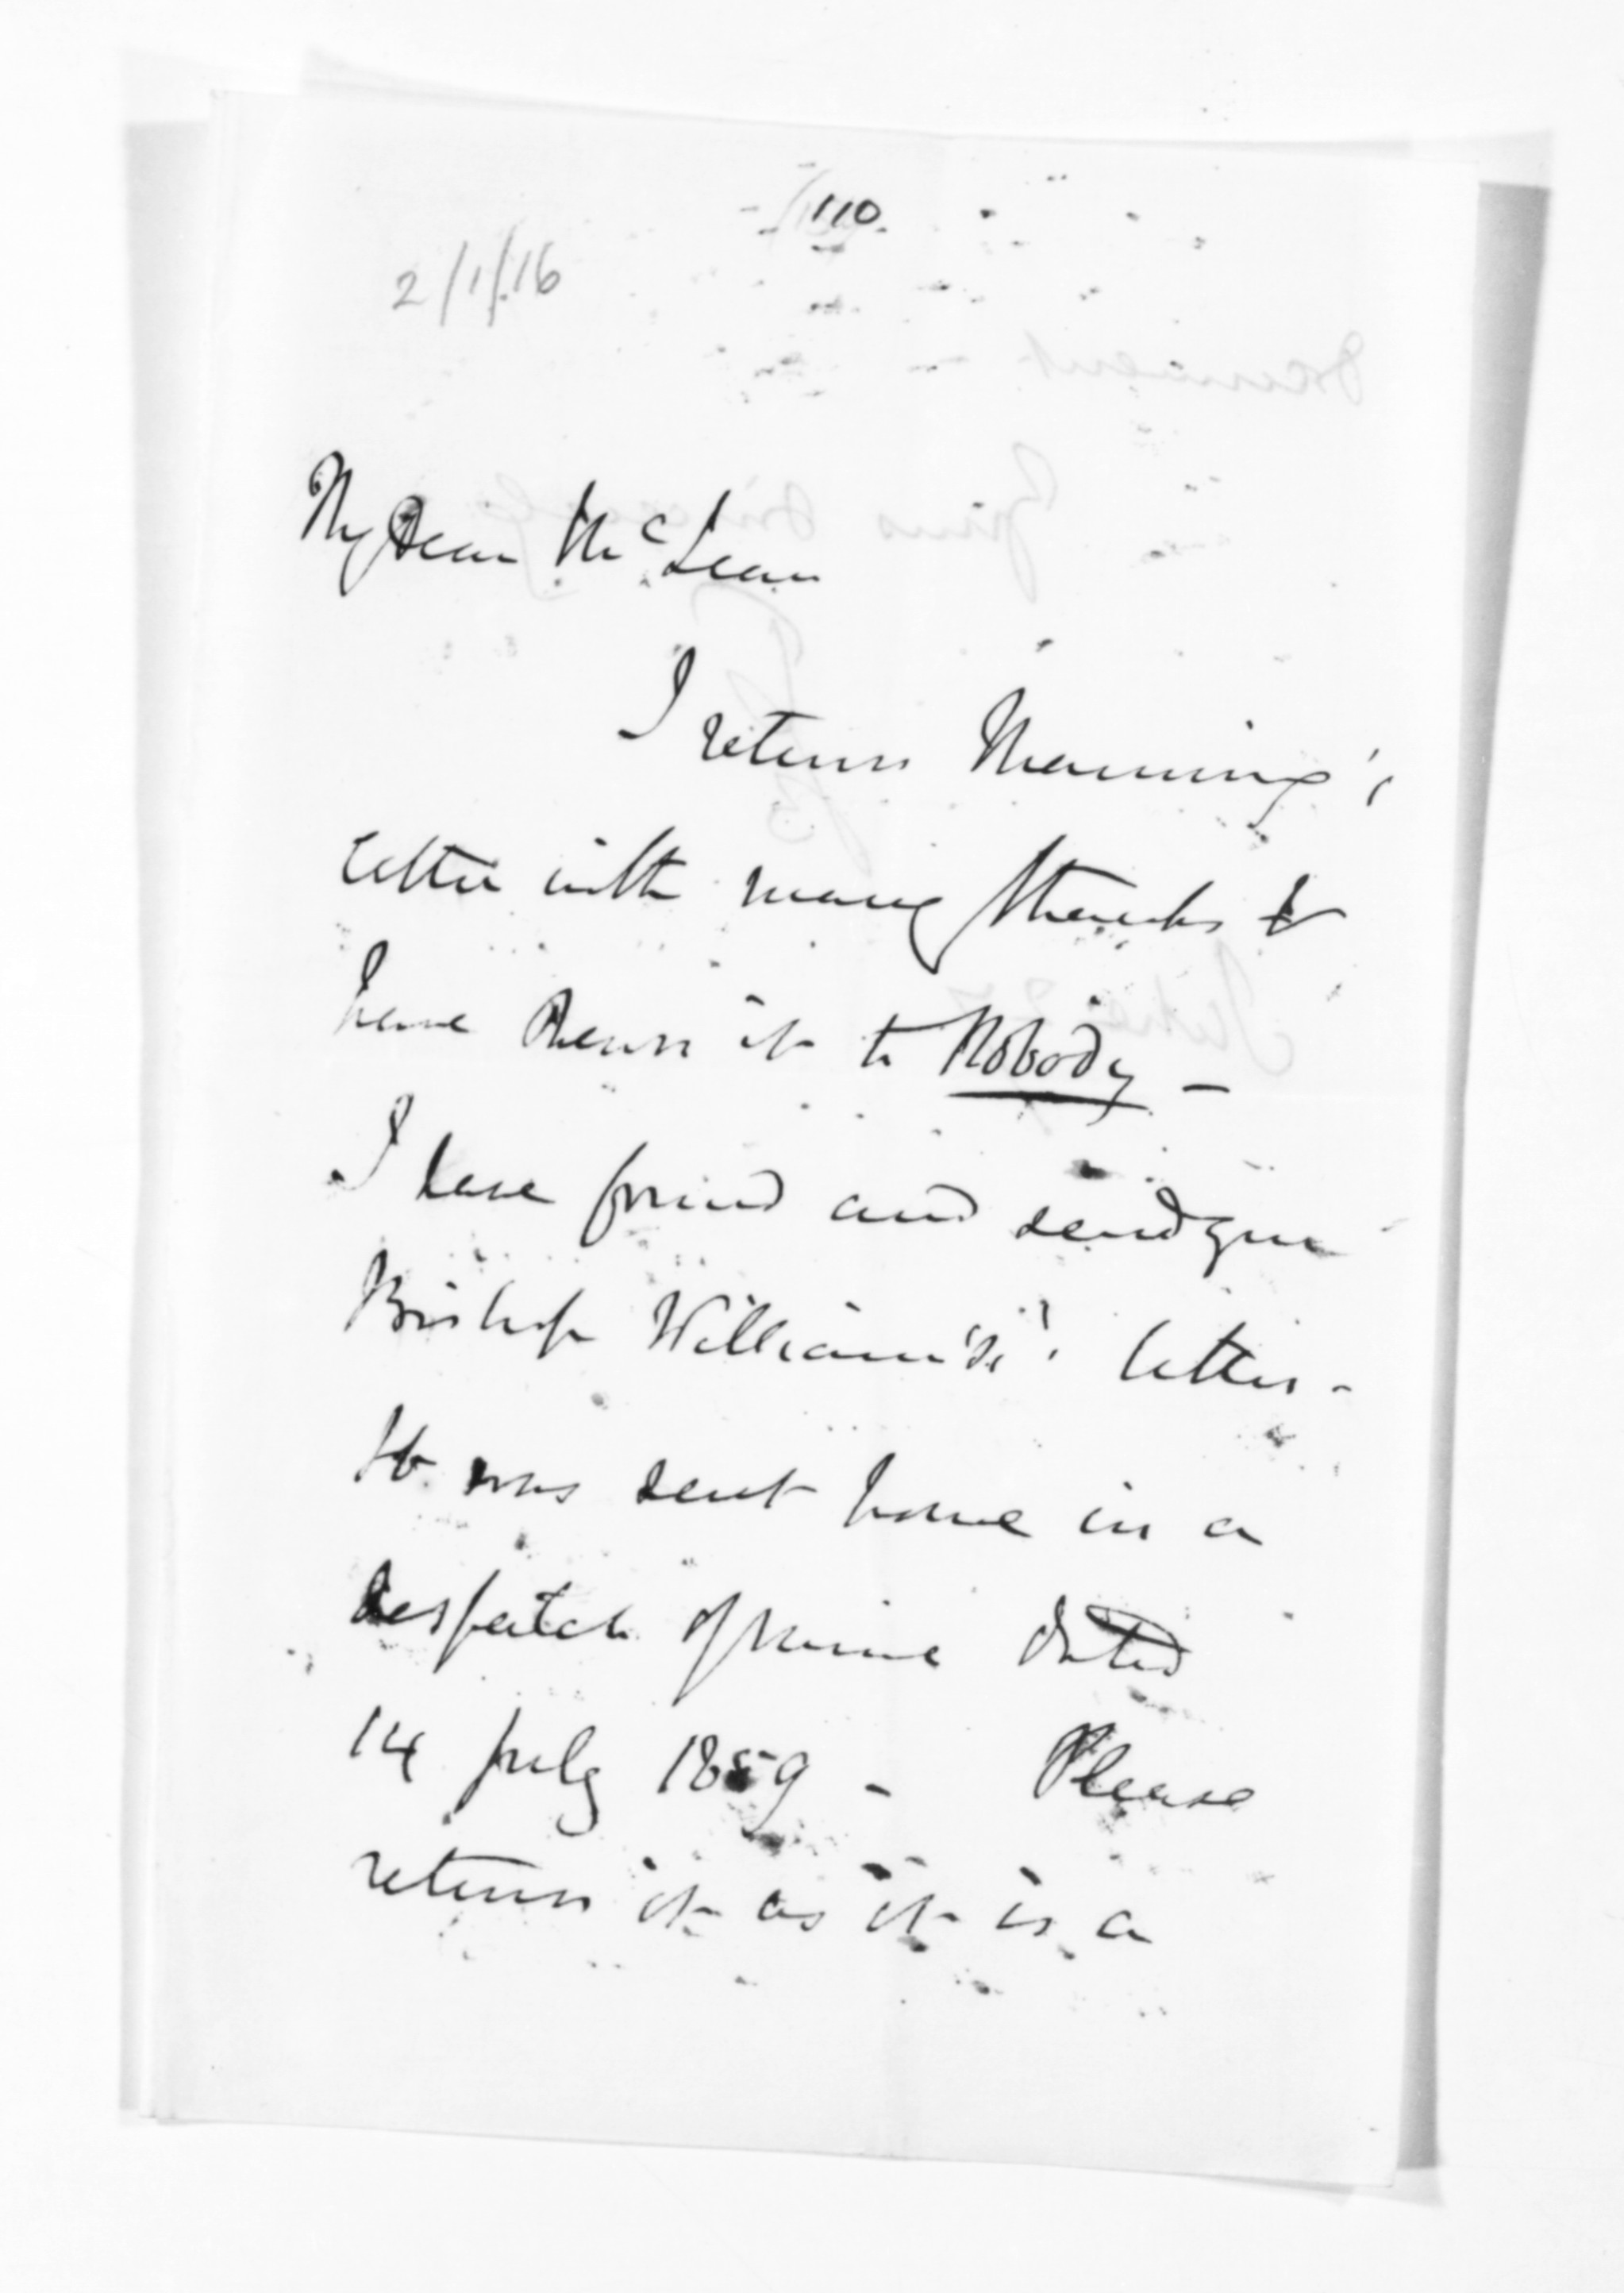 110
2/1/16
My Dear McLean
I return Manning's
letter with many thanks &
have shewn it to Nobody -
I have found and send you
Bishop William's' letter -
It was sent home in a
despatch of mine dated
14 July 1859 - Please
return it as it is a